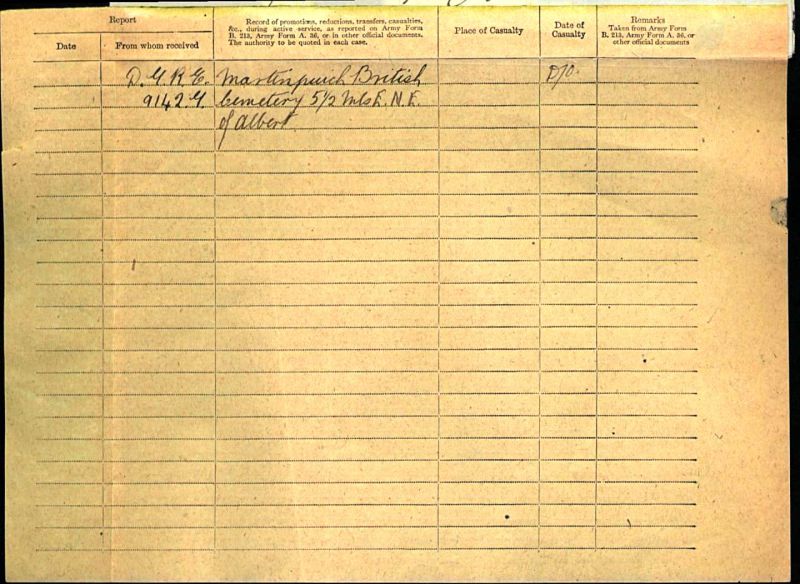 Report
Date
From whom received
Record of promotions, reductions, transfers, casualties,
&c., during active service, as reported on Army Form
B. 213, Army Form A. 36, or in other official documents.
The authority to be quoted in each case.
Place of Casualty
Date of
Casualty
Remarks
Taken from Army Form
B. 213, Army Form A. 36, or
other official documents
D.G.R.E. Martinpuich British
9142.G. Cemetery 5½ Mls E. N.E.
of Albert.